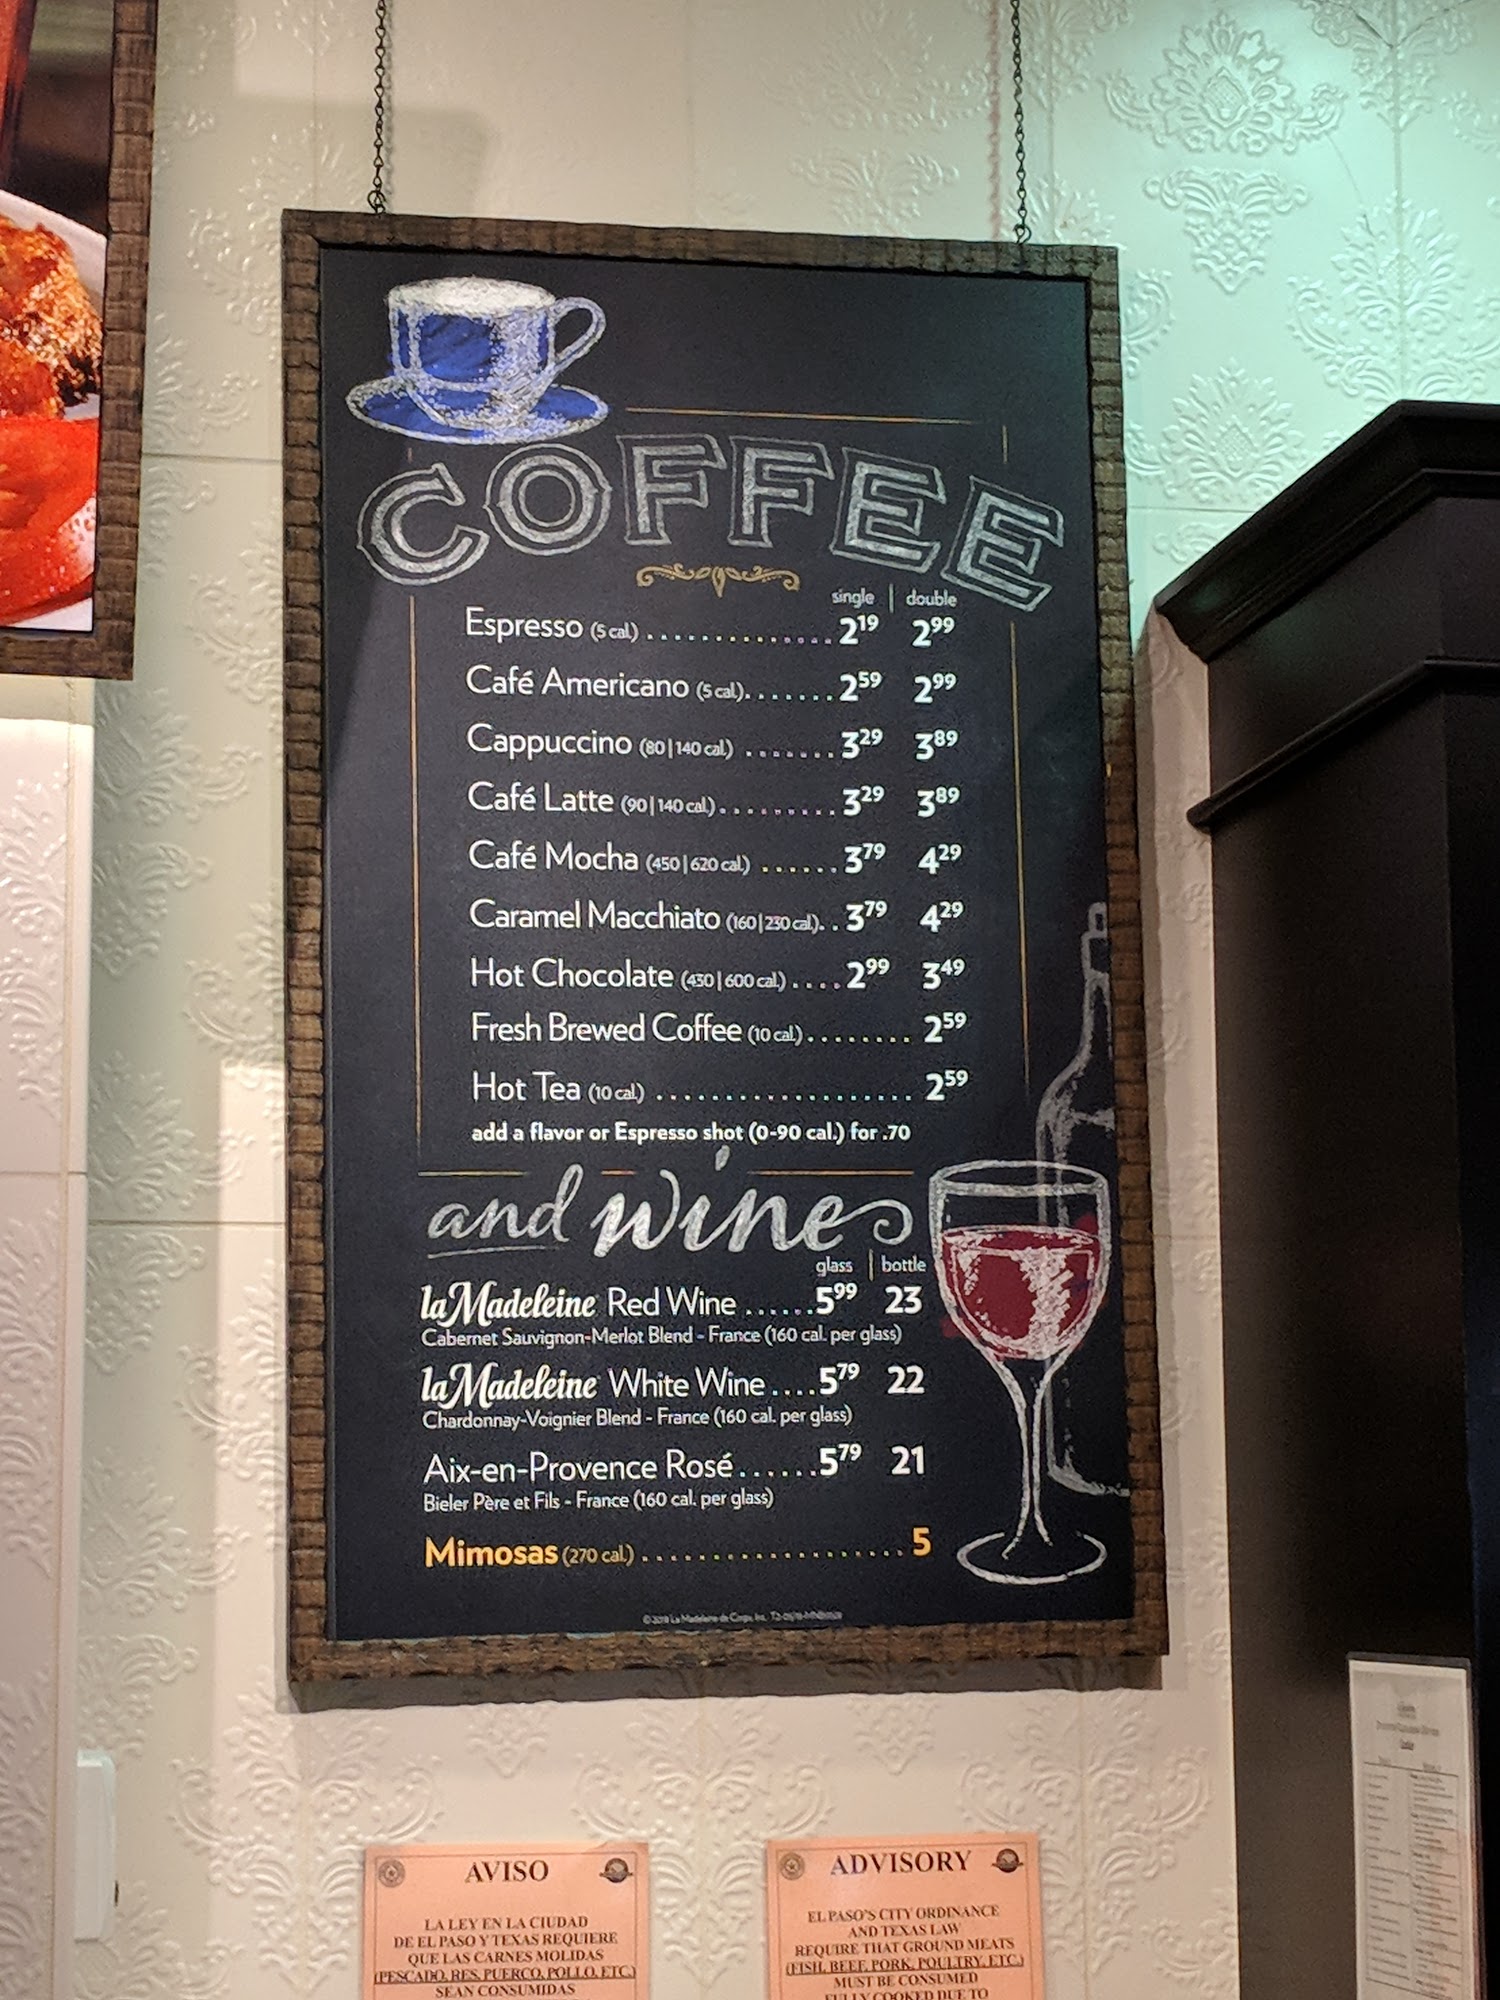 COFFEE
single | double
Espresso (5 cal.) ............... 2¹⁹ 2⁹⁹
Café Americano (5 cal.)....... 2⁵⁹ 2⁹⁹
Cappuccino (80|140 cal.) ....... 3²⁹ 3⁸⁹
Café Latte (90|140 cal.)......... 3²⁹ 3⁸⁹
Café Mocha (450|620 cal.) ...... 3⁷⁹ 4²⁹
Caramel Macchiato (160|230 cal.).. 3⁷⁹ 4²⁹
Hot Chocolate (430|600 cal.) .... 2⁹⁹ 3⁴⁹
Fresh Brewed Coffee (10 cal.)........ 2⁵⁹
Hot Tea (10 cal.) ................... 2⁵⁹
add a flavor or Espresso shot (0-90 cal.) for .70
and wine
glass | bottle
la Madeleine Red Wine ...... 5⁹⁹ 23
Cabernet Sauvignon-Merlot Blend - France (160 cal. per glass)
la Madeleine White Wine .... 5⁷⁹ 22
Chardonnay-Voignier Blend - France (160 cal. per glass)
Aix-en-Provence Rosé ...... 5⁷⁹ 21
Bieler Père et Fils - France (160 cal. per glass)
Mimosas (270 cal.) ..................... 5
La Madeleine de Corps, Inc.
AVISO
LA LEY EN LA CIUDAD
DE EL PASO Y TEXAS REQUIERE
QUE LAS CARNES MOLIDAS
(PESCADO, RES, PUERCO, POLLO, ETC.)
SEAN CONSUMIDAS
ADVISORY
EL PASO'S CITY ORDINANCE
AND TEXAS LAW
REQUIRE THAT GROUND MEATS
(FISH, BEEF, PORK, POULTRY, ETC.)
MUST BE CONSUMED
FULLY COOKED DUE TO